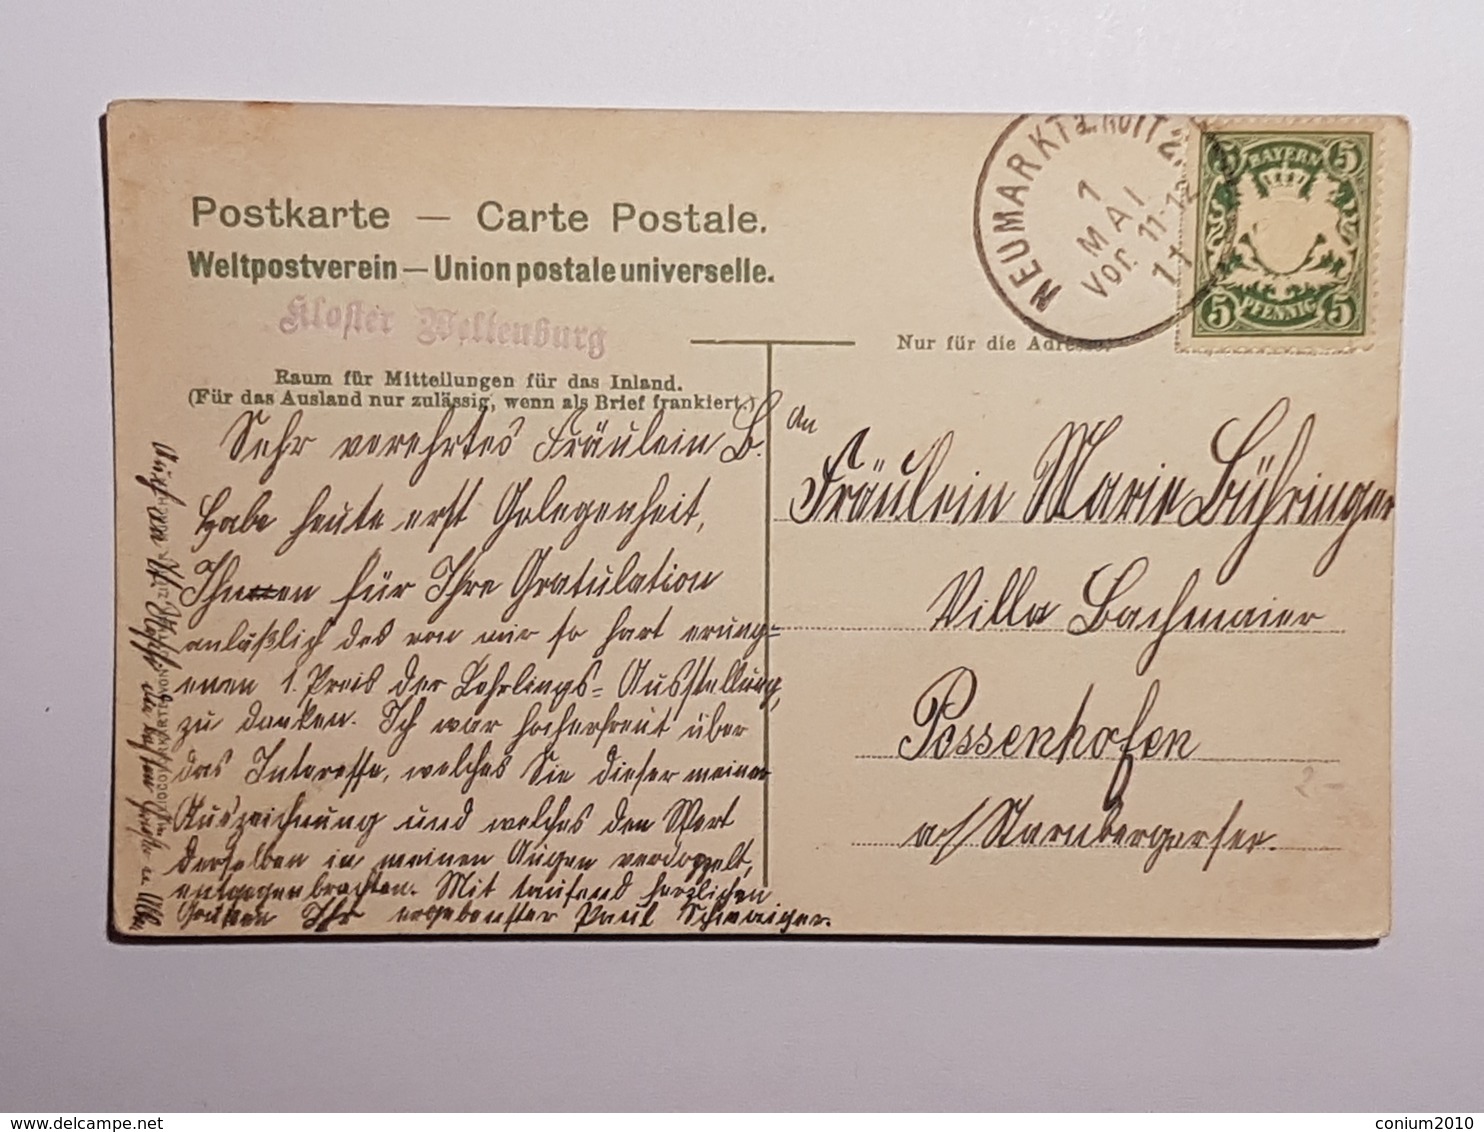 Postkarte — Carte Postale.
Weltpostverein — Union postale universelle.
Kloster Weltenburg
Raum für Mitteilungen für das Inland.
(Für das Ausland nur zulässig, wenn als Brief frankiert.)
Nur für die Adresse.
NEUMARKT a. ROTT
1
MAI
Vor. 11-12
11
BAYERN
5 5
5 PFENNIG 5
Sehr verehrtes Fräulein B.
Habe heute erst Gelegenheit,
Ihnen für Ihre Gratulation
anläßlich des von mir so hart errung=
enen 1. Preis der Lehrlings=Ausstellung,
zu danken. Ich war hocherfreut über
das Interesse, welches Sie dieser meiner
Auszeichnung und welches den Wert
derselben in meinen Augen verdoppelt,
entgegenbrachten. Mit tausend herzlichen
Grüßen Ihr ergebenster Paul Schwaiger.
An
Fräulein Marie Bühringer
Villa Bachmaier
Possenhofen
a/Starnbergersee.
2-
delcampe.net
conium2010